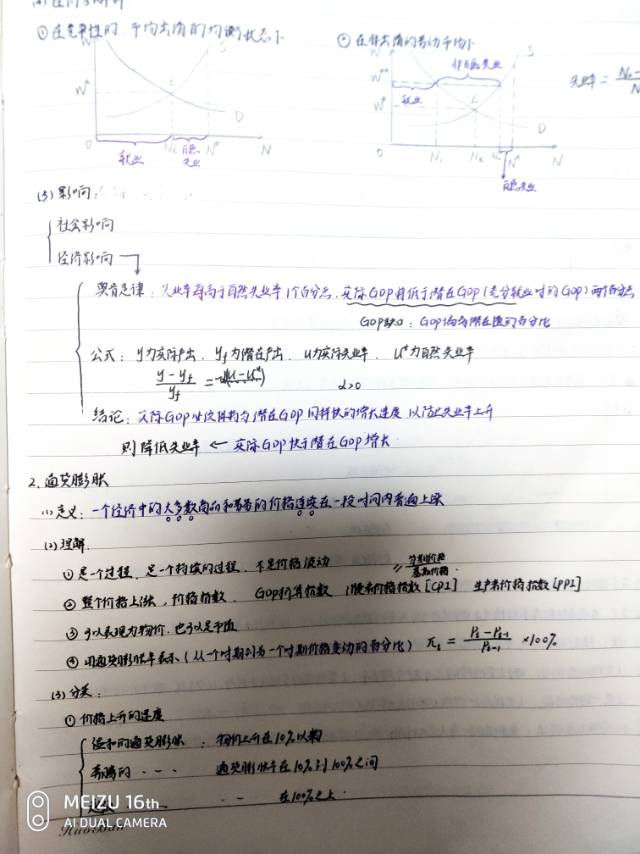 W* E S D O N_E N* N 就业 自愿失业
W** W* 非自愿失业 就业 E S D O N_1 N_E N* N 自愿失业
失业率 =
(3) 影响:
社会影响
经济影响
奥肯定律: 失业率每高于自然失业率1个百分点, 实际GDP将低于潜在GDP(充分就业时的GDP)两个百分点
GDP缺口: GDP偏离潜在值的百分比
公式: y为实际产出, y_f为潜在产出, u为实际失业率, u*为自然失业率
(y - y_f)/y_f = -α(u - u*) α>0
结论: 实际GDP必须保持与潜在GDP同样快的增长速度 以防止失业率上升
则降低失业率 ← 实际GDP快于潜在GDP增长
2. 通货膨胀
(1) 定义: 一个经济中的大多数商品和劳务的价格连续在一段时间内普遍上涨
(2) 理解
① 是一个过程, 是一个持续的过程, 不是价格波动
② 整个价格上涨, 价格指数, GDP折算指数 消费者价格指数[CPI] 生产者价格指数[PPI]
③ 可以表现为物价, 也可以是币值
④ 用通货膨胀率表示(从一个时期到另一个时期价格变动的百分比) π_t = (P_t - P_{t-1})/P_{t-1} ×100%
(3) 分类:
① 价格上升的速度
温和的通货膨胀: 物价上升在10%以内
奔腾的 · · · 通货膨胀率在10%到100%之间
· · 在100%之上
MEIZU 16th
AI DUAL CAMERA